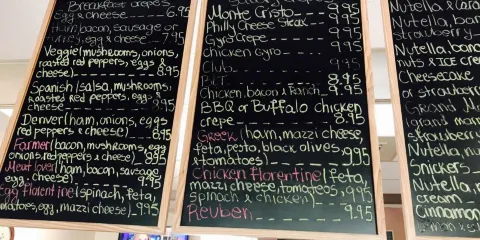 Breakfast crepes
Egg & cheese) 6.95
Ham (bacon, sausage or
egg & cheese) 7.95
Veggie (mushrooms, onions,
roasted red peppers, eggs &
cheese) 8.95
Spanish (salsa, mushrooms,
roasted red peppers, egg &
cheese) 8.95
Denver (ham, onions, egg
red peppers & cheese) 8.95
Farmer (bacon, mushrooms, egg
onions, red peppers & cheese) 8.95
Meat lover (ham, bacon, sausage,
egg & cheese) 9.95
Egg Florentine (spinach, feta,
tomatoes, egg, mazzi cheese) 9.95
Monte Cristo 9.95
Philly Cheese Steak 9.95
Gyro Crepe 9.95
Chicken Gyro 9.95
Club
BLT 8.95
Chicken, bacon & Ranch 9.95
BBQ or Buffalo Chicken
crepe 8.95
Greek (ham, mazzi cheese,
feta, pesto, black olives,
& tomatoes) 9.95
Chicken Florentine (feta,
mazzi cheese, tomatoes,
spinach & chicken) 9.95
Reuben 9.95
Nutella & Cara
Nutella or
strawberry
Nutella, bana
nuts & ice cre
Cheesecake
or strawber
Grand M
(grand mar
strawberri
Nutella, n
Snickers
Nutella, n
cream
Cinnamon
lemon &